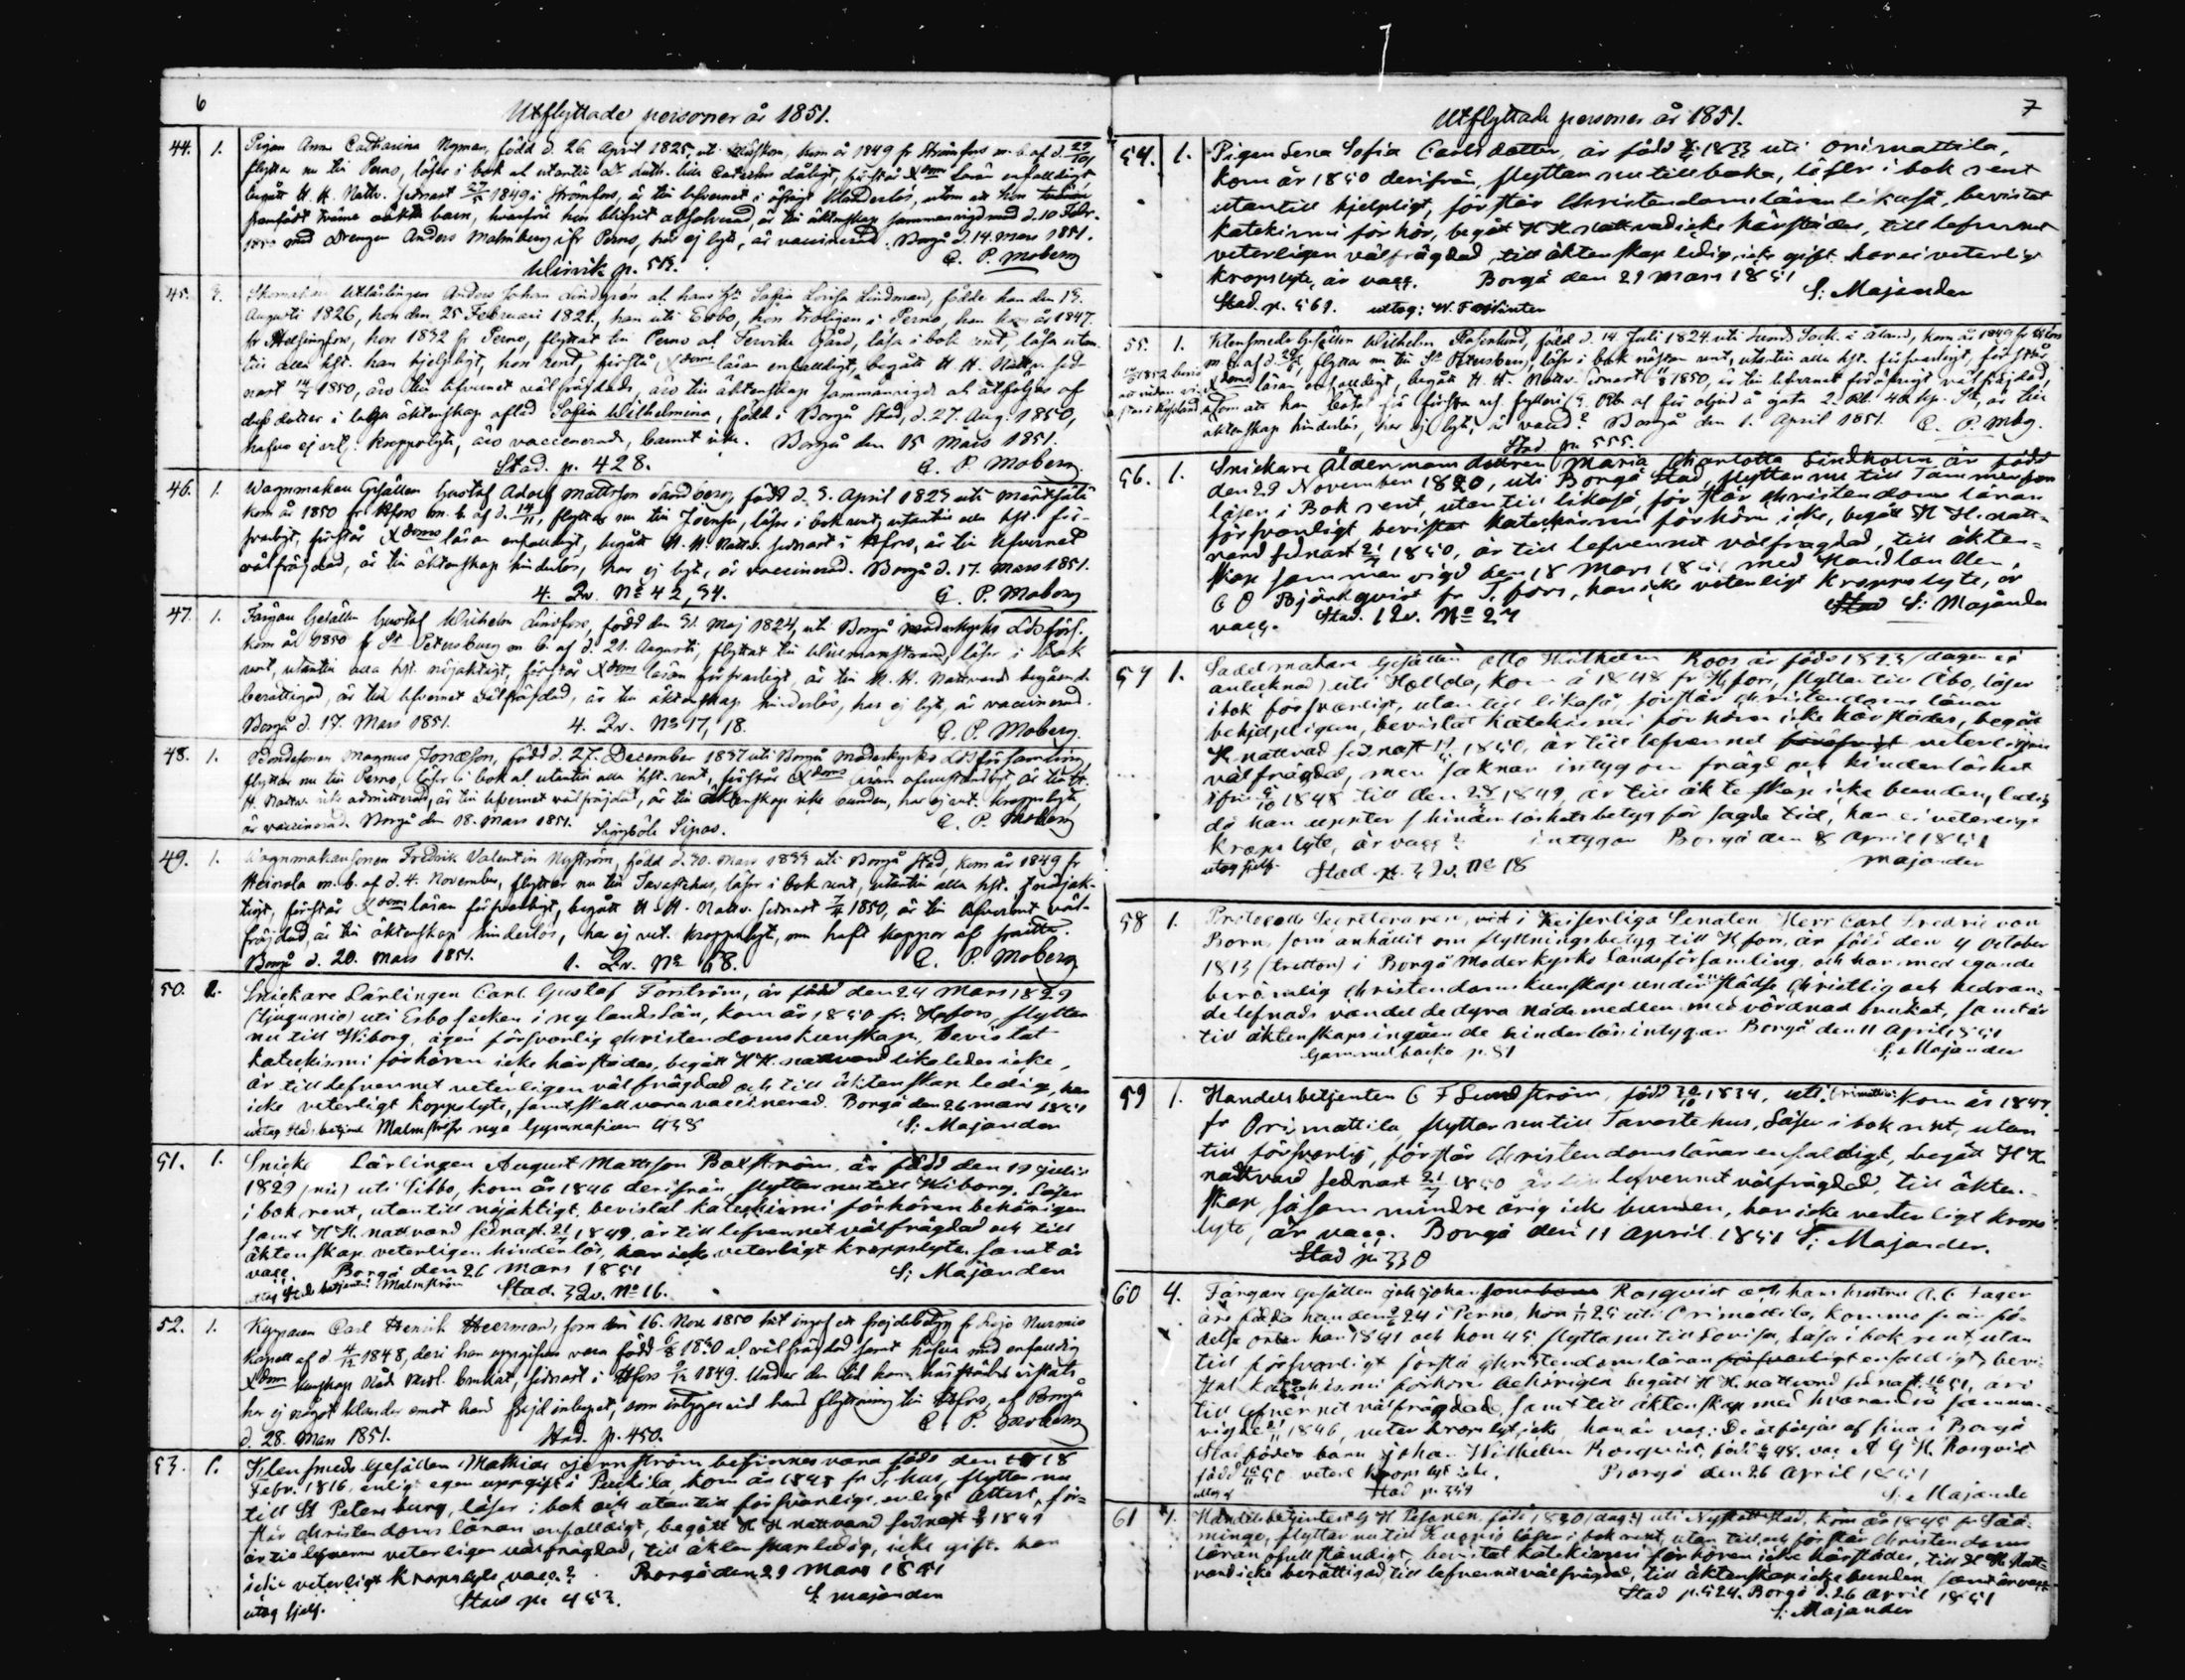 6
Utflyttade personer år 1851.
44. 1. Pigan Anna Catharina Nyman, född d. 26 April 1825, uti kom år 1849 fr Strömfors m. b. af d.
flyttar nu till Perno, läser i bok utantill Luth. lilla Catechs dåligt, förstår Xdoms läran enfaldigt
begått H. H. Nattv. sednast 1849 i Strömfors, är till lefvernet i öfrigt klanderlös, utom att hon
framfödt oäkta barn, hvarföre hon blifvit absolverad, är till äktenskap sammanvigd med d. 10 Febr.
1850 med Drengen Anders Malmberg ifr Perno, har ej lyte, är vaccinerad. Borgå d. 14. Mars 1851.
p. 513. C. P. Moberg
45. 3. Utlärlingen Anders Johan Lindgrén at. hans Sofia Lovisa Lindman, födde han den 13.
Augusti 1826, hon den 25 Februari 1821, han uti Esbo, hon i Perno, han kom år 1847
fr Helsingfors, hon 1832 fr Perno, flyttat till Perno at Tervik Gård, läsa i bok rent, läsa utan
till alla hst. han hjelpligt, hon rent, förstå Xdoms läran enfaldigt, begått H. H. Nattv. sed-
nast 14 1850, äro till lefvernet välfräjdade, äro till äktenskap sammanvigde at åtföljes af
dess dotter i äktenskap aflad Sofia Wilhelmina, född i Borgå Stad, d. 27. Aug. 1850,
hafva ej kroppslyte, äro vaccinerade, barnet icke. Borgå den 15 Mars 1851.
Stad. p. 428. C. P. Moberg
46. 1. Wagnmakare Gesällen Gustaf Adolf Mattsson Sandberg, född d. 3. April 1823 uti Mäntsälä
kom år 1850 fr Hfors m. b. af d. flyttar nu till Joensu, läser i bok rent, utantill alla hst. för-
svarligt, förstår Xdoms läran enfaldigt, begått H. H. Nattv. sednast i Hfors, är till lefvernet
välfräjdad, är till äktenskap hinderlös, har ej lyte, är vaccinerad. Borgå d. 17. Mars 1851.
4. Qv. No 42, 34. C. P. Moberg
47. 1. Färgare Gesällen Gustaf Wilhelm Lindfors, född den 31. Maj 1824, uti Borgå moderkyrko Ldsförs.
kom år 1850 fr St Petersburg m b. af d. 21. Augusti, flyttat till Willmanstrand, läser i bok
rent, utantill alla hst. nöjaktigt, förstår Xdoms läran försvarligt, är till H. H. Nattvard begående
berättigad, är till lefvernet välfräjdad, är till äktenskap hinderlös, har ej lyte, är vaccinerad.
Borgå d. 17. Mars 1851. 4. Qv. No 17, 18. C. P. Moberg.
48. 1. Bondesonen Magnus Jonasson, född d. 27. December 1837 uti Borgå Moderkyrko Ldsförsamling,
flyttar nu till Perno, läser i bok at utantill alla hst. rent, förstår Xdoms läran ofullständigt är till H.
H. Nattv. icke admitterad, är till lefvernet välfräjdad, är till äktenskap icke bunden, har ej vet. kroppslyte,
är vaccinerad. Borgå den 18. Mars 1851. Singsböle Sipas. C. P. Moberg
49. 1. Wagnmakaresonen Fredrik Valentin Nyström, född d. 30. Mars 1833 uti Borgå stad, kom år 1849 fr
Heinola m. b. af d. 4. November, flyttar nu till Tavastehus, läser i bok rent, utantill alla hst. nöjak-
tigt, förstår Xdoms läran försvarligt, begått H. H. Nattv. sednast 1850, är till lefvernet väl-
fräjdad, är till äktenskap hinderlös, har ej vet. kroppslyte, men haft koppor
Borgå d. 20. Mars 1851. 1. Qv. No 68. C. P. Moberg
50. 1. Snickare Lärlingen Carl Gustaf Forström, är född den 24 Mars 1829
(tjugunio) uti Esbo socken i nylands Län, kom år 1850 fr. Hfors, flyttar
nu till Wiborg, äger försvarlig christendomskunskap, bevistat
katekismi förhören icke härstädes, begått HH. nattvard likaledes icke,
är till lefvernet veterligen välfrägdad och till äktenskap ledig, har
icke veterligt kroppslyte, samt skall vara vaccinerad. Borgå den 26 mars 1851
uttag Stads betjent Malmström nya Gymnasium 438 S: Majander
51. 1. Snicke Lärlingen August Mattsson Boxström, är född den 19 Julii
1829 (nio) uti Sibbo, kom år 1846 derifrån, flyttar nu till Wiborg. Läser
i bok rent, utantill nöjaktigt, bevistat katekismi förhören behörigen
samt H H. nattvard sednast 21 1849, är till lefvernet välfrägdad och till
äktenskap veterligen hinderlös, har icke veterligt kroppslyte samt är
vacc. Borgå den 26 Mars 1851 S: Majander
uttag Stads betjent: Malmström Stad. 3 Qv. No 16.
52. 1. Kypparen Carl Henrik Heerman, som den 16. Nov 1850 hit ingaf ett frejdebetyg fr Lojo Nummis
Kapell af d. 4/12 1848, deri han uppgifves vara född 1830 at välfräjdad samt hafva med enfaldig
Xdoms kunskap Nåd. Medl. brukat, sednast i Hfors 1849. Under den tid han härstädes vistats
har ej något klander emot hans frejd inlupit, som intygas vid hans flyttning till Hfors, af Borgå
d. 28. Mars 1851. Stad. p. 450. C. P. Moberg
53. 1. Klensmeds Gesällen Mathias Sjernström befinnes vara född den 18
Febr. 1816, enligt egen uppgift i Puckila, kom år 1848 fr T. hus, flyttar nu
till St Petersburg, läser i bok och utantill försvarligt, enligt Attest, för-
står christendoms läran enfaldigt, begått H H nattvard sednast 1849
är till lefvern veterligen välfrägdad, till äktenskap ledig, icke gift. har
icke veterligt kroppslyte, vacc? Borgå den 29 Mars 1851
uttog sjelf. Stad p: 453. S: Majander
Utflyttade personer år 1851.
7
54. 1. Pigan Lena Sofia Carlsdotter, är född 1833 uti Orimattila,
kom år 1850 derifrån, flyttar nu tillbaka, läser i bok rent
utantill hjelpligt, förstår Christendomsläran likaså, bevistat
katekismi förhör, begått H H nattvard icke härstädes, till lefvernet
veterligen välfrägdad, till äktenskap ledig, icke gift. har ei veterligt
kropslyte, är vacc. Borgå den 29 mars 1851
Stad. p. 569. uttog: S: Majander
55. 1. Klensmeds Gesällen Wilhelm Rosenlund, född d. 14 Juli 1824 uti Sunds Sock. i Åland, kom år 1849 fr Hfors
m. b. af d. flyttar nu till St Petersburg, läser i bok nästan rent, utantill alla hst. försvarligt, förstår
Xdoms läran enfaldigt, begått H. H. Nattv. sednast 1850, är till lefvernet föröfrigt välfräjdad,
utom att han bötat för första resans fylleri 3 Rb at för oljud å gata 2 Rb. 40 kop. Sr, är till
äktenskap hinderlös, har ej lyte, är vacc? Borgå den 1. April 1851. C. P. Mbg.
Stad. p. 555.
56. 1. Snickare Åldermans dottren Maria Charlotta Lindholm är född
den 29 November 1820, uti Borgå Stad, flyttar nu till Tammerfors
läser i Bok rent, utantill likaså, förstår Christendoms läran
försvarligt bevistat katekismi förhören icke, begått H H. natt-
vard sednast 21 1850, är till lefvernet välfragdad, till äkten-
skap sammanvigd den 18 Mars 1851 med Handlanden,
C O Björkqvist fr T. fors, har icke veterligt kroppslyte, är
vacc. Stad. 1 Qv. No 27 S: Majander
57 1. Sadelmakare Gesällen Otto Wilhelm Roos är född 1823 (dagen ei
antecknad) uti Hollola, kom å 1848 fr Hfors, flyttar till Åbo, läser
i bok försvarligt, utantill likaså, förstår christendoms läran
behjelpligen, bevistat katekismi förhören icke härstädes, begått
H. nattvard sednast 1850, är till lefvernet veterligen
välfrägdad, men saknar intyg om frägd och hinderlöshet
ifrån 1848 till den 28 1849, är till äktenskap icke bunden, ledig
då han uppter hinderlöshetsbetyg för sagde tid, har ei veterligt
kropslyte, är vacc? intygar Borgå den 8 April 1851
uttog sjelf. Stad p. 3 Qv. No 18 Majander
58 1. Protocolls Secreteraren, vid i Keiserliga Senaten Herr Carl Fredric von
Born, som anhållit om flyttningsbetyg till Hfors, är född den 4 October
1813 (tretton) i Borgå Moderkyrko Landsförsamling, och har med egande
berömlig Christendomskunskap under en städse christlig och hedran-
de lefnads vandel de dyra nådemedlen med vördnad brukat, samt är
till äktenskaps ingående hinderlös intygar Borgå den 11 April 1851
Gammelbacka p. 81 S: Majander
59 1. Handelsbetjenten C F Lundström, född 30/10 1834, uti Orimattila Kom år 1847
fr Orimattila, flyttar nu till Tavastehus, Läser i bok rent, utan
till försvarlig, förstår Christendomsläran enfaldigt, begått H H
nattvard sednast 21 1850 är till lefvernet välfrägdad, till äkten-
skap såsom minderårig icke bunden, har icke veterligt krops
lyte, är vacc. Borgå den 11 April 1851 S: Majander.
Stad p: 330
60 4. Färgare Gesällen Johan Rosqvist och hans hustru Fager
äro födda han den 24 i Perno, hon 25 uti Orimattila, komna fr sin fö-
delse orter han 1841 och hon 45 flytta nu till Lovisa, Läsa i bok rent, utan
till försvarligt förstå Christendomsläran enfaldigt, bevi-
stat katekismi förhören behörigen begått H H. nattvard sednast 51, äro
till lefvernet välfrägdade, samt till äktenskap med hvarandra samman-
vigde 1846, veter. kropslyt icke, han är vac: De åtföljas af sina i Borgå
Stad födda barn Johan Wilhelm Rosqvist, född 48. vac A G H. Rosqvist
född 50 veterl kropslyt icke. Borgå den 26 April 1851
Stad p. 359 S: Majande
61 1. Handelsbetjenten G H Pesonen, född 1830 (dag?) uti Nyslott Stad, kom år 1845 fr Sää-
minge, flyttar nu till Kuopio läser i bok rent, utan till, och förstår Christendoms
läran ofullständigt, bevistat katekismi förhören icke härstädes, till H H. Natt-
vard icke berättigad, till lefvernet välfrägdad, till äktenskap icke bunden, samt är vacc.
Stad p. 524. Borgå d. 26 April 1851
S: Majander